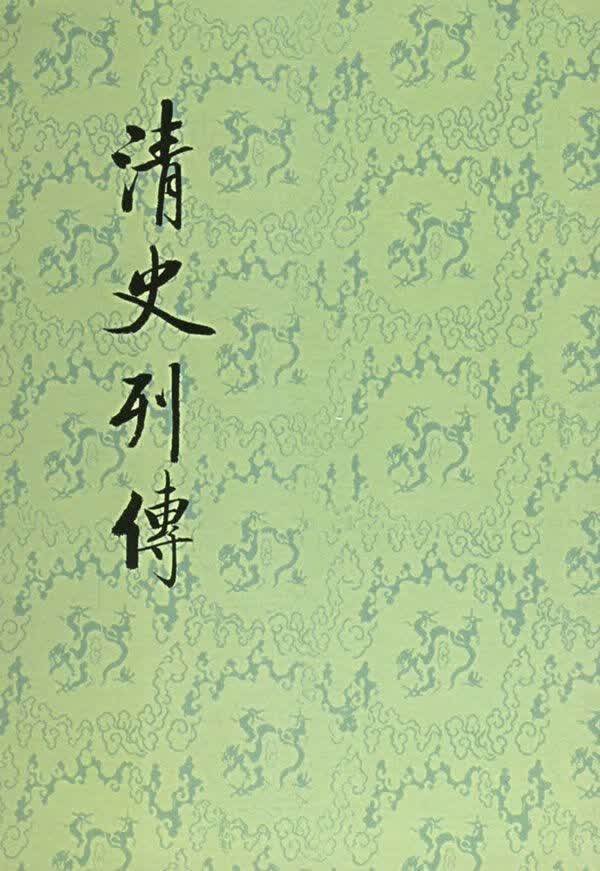 清史列傳